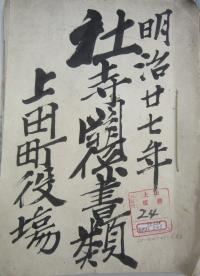 明治廿七年
社寺関係書類
上田町役場
上田
24